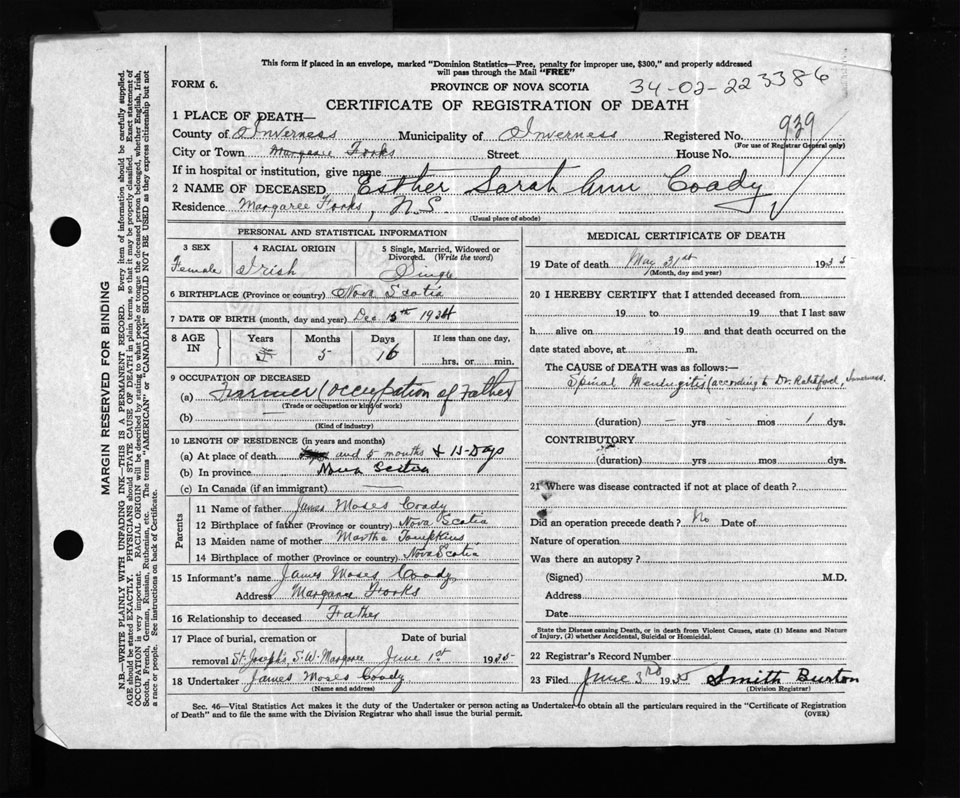 This form if placed in an envelope, marked "Dominion Statistics—Free, penalty for improper use, $300," and properly addressed
will pass through the Mail "FREE"
FORM 6.
PROVINCE OF NOVA SCOTIA
34-02-223386
CERTIFICATE OF REGISTRATION OF DEATH
1 PLACE OF DEATH—
County of Inverness Municipality of Inverness Registered No. 939
(For use of Registrar General only)
City or Town Margaree Forks Street House No.
If in hospital or institution, give name
2 NAME OF DECEASED Esther Sarah Ann Coady
Residence Margaree Forks, N.S.
(Usual place of abode)
PERSONAL AND STATISTICAL INFORMATION
3 SEX 4 RACIAL ORIGIN 5 Single, Married, Widowed or
Divorced. (Write the word)
Female Irish Single
6 BIRTHPLACE (Province or country) Nova Scotia
7 DATE OF BIRTH (month, day and year) Dec 15th 1934
8 AGE IN Years Months Days If less than one day,
5 16 hrs. or min.
9 OCCUPATION OF DECEASED
(a) Farmer (Occupation of Father)
(Trade or occupation or kind of work)
(b)
(Kind of industry)
10 LENGTH OF RESIDENCE (in years and months)
(a) At place of death and 5 months & 15 Days
(b) In province Nova Scotia
(c) In Canada (if an immigrant)
Parents
11 Name of father James Moses Coady
12 Birthplace of father (Province or country) Nova Scotia
13 Maiden name of mother Martha Tompkins
14 Birthplace of mother (Province or country) Nova Scotia
15 Informant's name James Moses Coady
Address Margaree Forks
16 Relationship to deceased Father
17 Place of burial, cremation or Date of burial
removal St. Joseph's, S.W. Margaree June 1st 1935
18 Undertaker James Moses Coady
(Name and address)
MEDICAL CERTIFICATE OF DEATH
19 Date of death May 31st 1935
(Month, day and year)
20 I HEREBY CERTIFY that I attended deceased from
19 to 19 that I last saw
h alive on 19 and that death occurred on the
date stated above, at m.
The CAUSE of DEATH was as follows:—
Spinal Meningitis (according to Dr. Ratchford, Inverness.
(duration) – yrs – mos 1 dys.
CONTRIBUTORY
(duration) yrs mos dys.
21 Where was disease contracted if not at place of death?
Did an operation precede death? No Date of
Nature of operation
Was there an autopsy?
(Signed) M.D.
Address
Date
State the Disease causing Death, or in death from Violent Causes, state (1) Means and Nature
of Injury, (2) whether Accidental, Suicidal or Homicidal.
22 Registrar's Record Number
23 Filed June 3rd 1935 Smith Burton
(Division Registrar)
Sec. 46—Vital Statistics Act makes it the duty of the Undertaker or person acting as Undertaker to obtain all the particulars required in the "Certificate of Registration
of Death" and to file the same with the Division Registrar who shall issue the burial permit. (OVER)
MARGIN RESERVED FOR BINDING
N.B.—WRITE PLAINLY WITH UNFADING INK—THIS IS A PERMANENT RECORD. Every item of information should be carefully supplied.
AGE should be stated EXACTLY. PHYSICIANS should STATE CAUSE OF DEATH in plain terms, so that it may be properly classified. Exact statement of
OCCUPATION is very important. RACIAL ORIGIN will be described by stating to what people or tongue the deceased person belonged, whether English, Irish,
Scotch, French, German, Russian, Ruthenian, etc. The terms "AMERICAN" or "CANADIAN" SHOULD NOT BE USED as they express citizenship but not
a race or people. See instructions on back of Certificate.